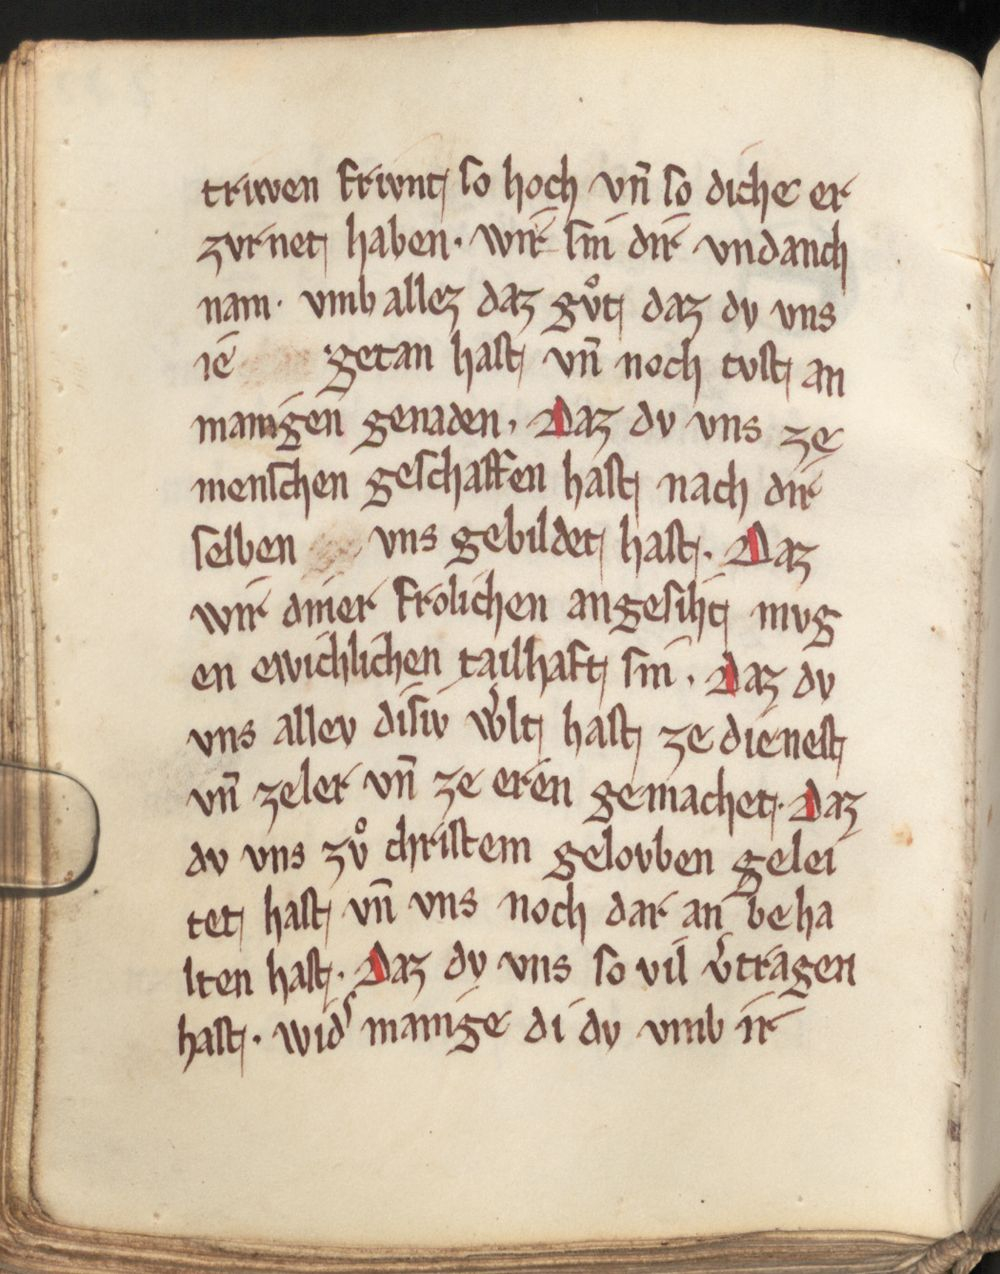 triwen friwnt so hoch vn̄ so diche er
zvrnet haben · wir sin dir vndanch
nam · vmb allez daz gůt daz dv vns
ie getan hast vn̄ noch tvst an
manigen genaden · Daz dv vns ze
menschen geschaffen hast nach dir
selben vns gebildet hast · Daz
wir dinier frolichen angesiht mvg
en ewichlichen tailhaft sin · Daz dv
vns allev disiv w̓lt hast ze dienest
vn̄ zeler vn̄ ze eren gemachet · Daz
dv vns zv̊ christem gelovben gelei
tet hast vn̄ vns noch dar an beha
lten hast · Daz dv vns so vil v̓tragen
hast · wid̓ manige di dv vmb ir